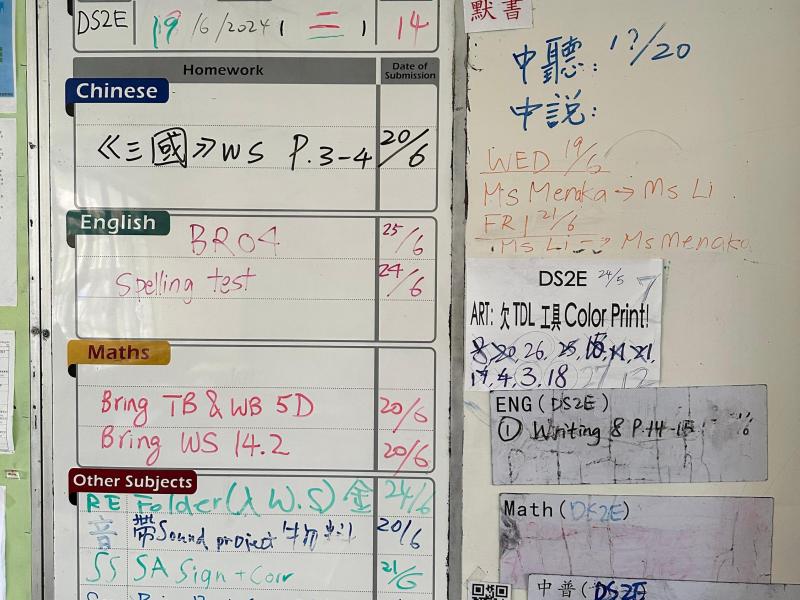 DS2E 19/6/2024 ( 二 ) 14
Homework Date of Submission
Chinese
《三國》WS P.3-4 20/6
English
BR04 25/6
Spelling test 24/6
Maths
Bring TB & WB 5D 20/6
Bring WS 14.2 20/6
Other Subjects
RE Folder(入W.S) 金 24/6
音 帶Sound project 材料 20/6
SS SA Sign + Corr 21/6
默書
中聽: 1?/20
中說:
WED 19/6
Ms Menaka → Ms Li
FRI 21/6
Ms Li → Ms Menaka
DS2E 24/5
ART: 欠 TDL 工具 Color Print!
8, 20, 26, 25, 15, 11, 21,
19, 4, 3, 18
ENG (DS2E)
① Writing 8 P.14-15
Math (DS2E)
中普 (DS2E